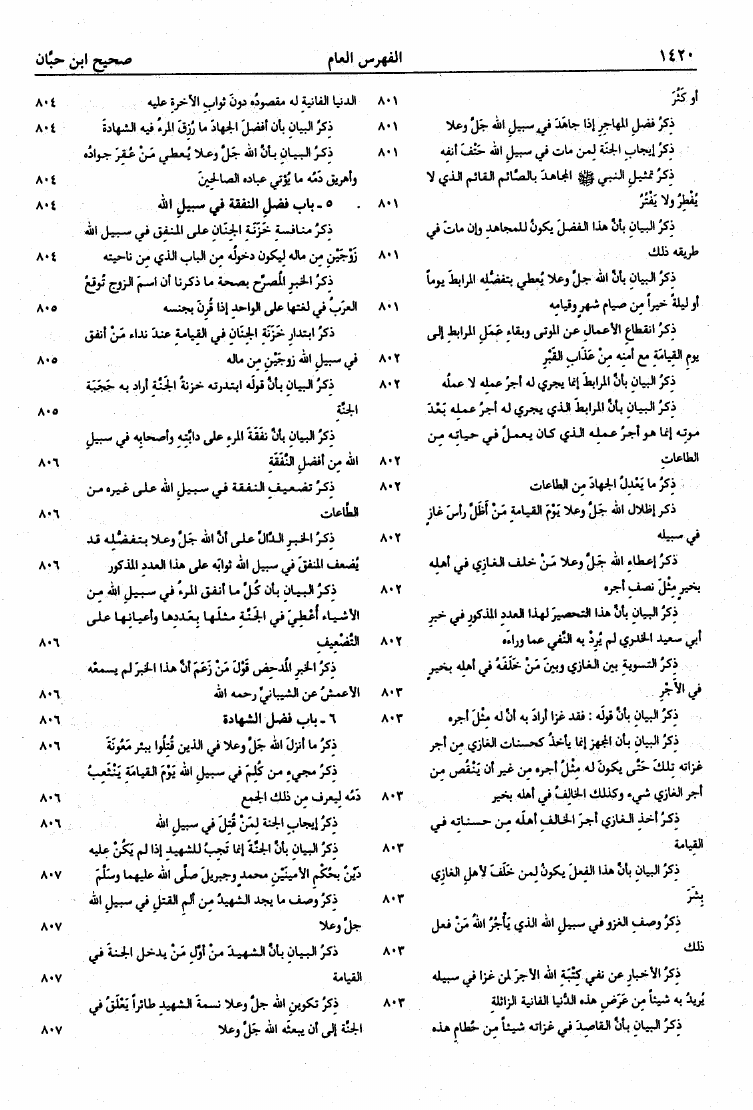 ١٤٢٠ الفهرس العام صحيح ابن حبَّان
أو كَثُرَ ٨٠١
ذِكرُ فضلِ المهاجرِ إذا جاهَدَ في سبيلِ الله جَلَّ وعلا ٨٠١
ذِكرُ إيجابِ الجنَّة لمن مات في سبيلِ الله حَتْفَ أنفِه ٨٠١
ذكرُ تمثيلِ النبي ﷺ المجاهدَ بالصَّائم القائم الذي لا
يُفْطِرُ ولا يَفْتُرُ ٨٠١
ذكر البيانِ بأنَّ هذا الفضلَ يكونُ للمجاهدِ وإن ماتَ في
طريقه ذلك ٨٠١
ذِكرُ البيانِ بأنَّ الله جلَّ وعلا يُعطي بتفضُّلِه المرابطَ يوماً
أو ليلةً خيراً من صيامِ شهرٍ وقيامِه ٨٠١
ذِكرُ انقطاعِ الأعمالِ عن الموتى وبقاءِ عَمَلِ المرابطِ إلى
يومِ القيامَةِ مع أمنِه مِنْ عَذَابِ القَبْرِ ٨٠٢
ذِكرُ البيانِ بأنَّ المرابطَ إنما يجري له أجرُ عملِه لا عملُه ٨٠٢
ذكرُ البيانِ بأنَّ المرابطَ الذي يجري له أجرُ عملِه بَعْدَ
موتِه إنما هو أجرُ عملِه الذي كان يعملُ في حياتِه من
الطاعاتِ ٨٠٢
ذِكرُ ما يَعْدِلُ الجهادَ مِن الطاعات ٨٠٢
ذكر إظلالِ الله جَلَّ وعلا يَوْمَ القيامةِ مَنْ أَظَلَّ رأسَ غازٍ
في سبيلِه ٨٠٢
ذكرُ إعطاءِ الله جَلَّ وعلا مَنْ خلف الغازي في أهلِه
بخيرٍ مِثْلَ نصفِ أجرِه ٨٠٢
ذِكرُ البيانِ بأنَّ هذا التحصيرَ لهذا العددِ المذكورِ في خبرِ
أبي سعيد الخدري لم يُرِدْ به النَّفي عما وراءَه ٨٠٢
ذكرُ التسويةِ بين الغازي وبينَ مَنْ خَلَفَهُ في أهلِه بخيرٍ
في الأَجْرِ ٨٠٣
ذِكرُ البيانِ بأنَّ قولَه : فقد غزا أرادَ به أن له مِثْلَ أجره ٨٠٣
ذِكرُ البيانِ بأن المجهزَ إنما يأخذُ كحسناتِ الغازي مِن أجر
غزاتِه تِلكَ حَتَّى يكونَ له مِثْلُ أجرِه مِن غيرِ أن يَنْقُصَ مِن
أجرِ الغازي شيء وكذلك الخالِفُ في أهلِه بخير ٨٠٣
ذكرُ أخذِ الغازي أجرَ الخالفِ أهلَه من حسناتِه في
القيامةِ ٨٠٣
ذكرُ البيانِ بأنَّ هذا الفِعلَ يكونُ لمن خَلَفَ لأهلِ الغازي
بِشَرٍّ ٨٠٣
ذكرُ وصفِ الغزو في سبيلِ الله الذي يَأْجُرُ اللهُ مَنْ فعل
ذلك ٨٠٣
ذِكرُ الأخبارِ عن نفي كِتْبَةِ الله الأجرَ لمن غزا في سبيلِه
يُريدُ به شيئاً مِن عَرَضِ هذه الدُّنيا الفانية الزائلةِ ٨٠٣
ذِكرُ البيانِ بأنَّ القاصِدَ في غزاتِه شيئاً مِن حُطامِ هذه
الدنيا الفانية له مقصودُه دونَ ثوابِ الآخرةِ عليه ٨٠٤
ذِكرُ البيانِ بأن أفضلَ الجهادِ ما رُزِقَ المرءُ فيه الشهادةَ ٨٠٤
ذِكرُ البيانِ بأنَّ اللهَ جَلَّ وعلا يُعطي مَنْ عُقِرَ جوادُه
وأُهريق دَمُه ما يُؤتي عبادَه الصالحين ٨٠٤
٥ - باب فضل النفقة في سبيل الله ٨٠٤
ذكرُ منافسةِ خَزَنَةِ الجِنَان على المنفق في سبيلِ الله
زَوْجَيْنِ مِن مالِه ليكون دخولُه من البابِ الذي مِن ناحيته ٨٠٤
ذكرُ الخبرِ المُصرِّح بصحة ما ذكرنا أن اسمَ الزوج تُوقِعُ
العربُ في لغتها على الواحدِ إذا قُرِنَ بجنسه ٨٠٥
ذكرُ ابتدارِ خَزَنَةِ الجِنَانِ في القيامةِ عندَ نداءِ مَنْ أنفق
في سبيلِ الله زوجَيْنِ من مالِه ٨٠٥
ذكرُ البيانِ بأنَّ قولَه ابتدرته خزنةُ الجَنَّةِ أرادَ به حَجَبَةَ
الجنَّةِ ٨٠٥
ذِكرُ البيانِ بأنَّ نَفَقَةَ المرءِ على دابَّتِه وأصحابِه في سبيلِ
الله مِن أفضلِ النَّفقَةِ ٨٠٦
ذكرُ تضعيفِ النفقة في سبيلِ الله على غيرِه من
الطَّاعات ٨٠٦
ذكرُ الخبرِ الدَّالِّ على أنَّ اللهَ جَلَّ وعلا بتفضُّلِه قد
يُضعف المنفقَ في سبيل الله ثوابَه على هذا العددِ المذكور ٨٠٦
ذِكرُ البيانِ بأن كُلَّ ما أنفق المرءُ في سبيل الله مِن
الأشياء أُعْطِيَ في الجَنَّة مثلَها بِعَددِها وأعيانِها على
التَّضْعِيفِ ٨٠٦
ذكرُ الخبرِ المُدحِضِ قَوْلَ مَنْ زَعَمَ أنَّ هذا الخبرَ لم يسمعْه
الأعمشُ عن الشيبانيِّ رحمه الله ٨٠٦
٦ - باب فضل الشهادة ٨٠٦
ذِكرُ ما أنزلَ الله جَلَّ وعلا في الذين قُتِلُوا ببئرِ مَعُونَةَ ٨٠٦
ذكرُ مجيء من كُلِمَ في سبيلِ الله يَوْمَ القيامَةِ يَنْثَعِبُ
دَمُه ليعرف مِن ذلك الجمع ٨٠٦
ذِكرُ إيجابِ الجنة لِمَنْ قُتِلَ في سبيلِ الله ٨٠٦
ذِكرُ البيانِ بأنَّ الجنَّةَ إنما تَجِبُ للشهيدِ إذا لم يَكُنْ عليه
دَيْنٌ بحُكْمِ الأمينَيْنِ محمدٍ وجبريلَ صلَّى الله عليهما وسَلَّمَ ٨٠٧
ذكرُ وصفِ ما يجد الشهيدُ مِن ألمِ القتلِ في سبيلِ الله
جلَّ وعلا ٨٠٧
ذكرُ البيانِ بأنَّ الشهيدَ مِنْ أوَّلِ مَنْ يدخل الجنةَ في
القيامةِ ٨٠٧
ذِكرُ تكوينِ الله جلَّ وعلا نسمةَ الشهيدِ طائراً يَعْلَقُ في
الجنَّةِ إلى أن يبعثَه الله جَلَّ وعلا ٨٠٧